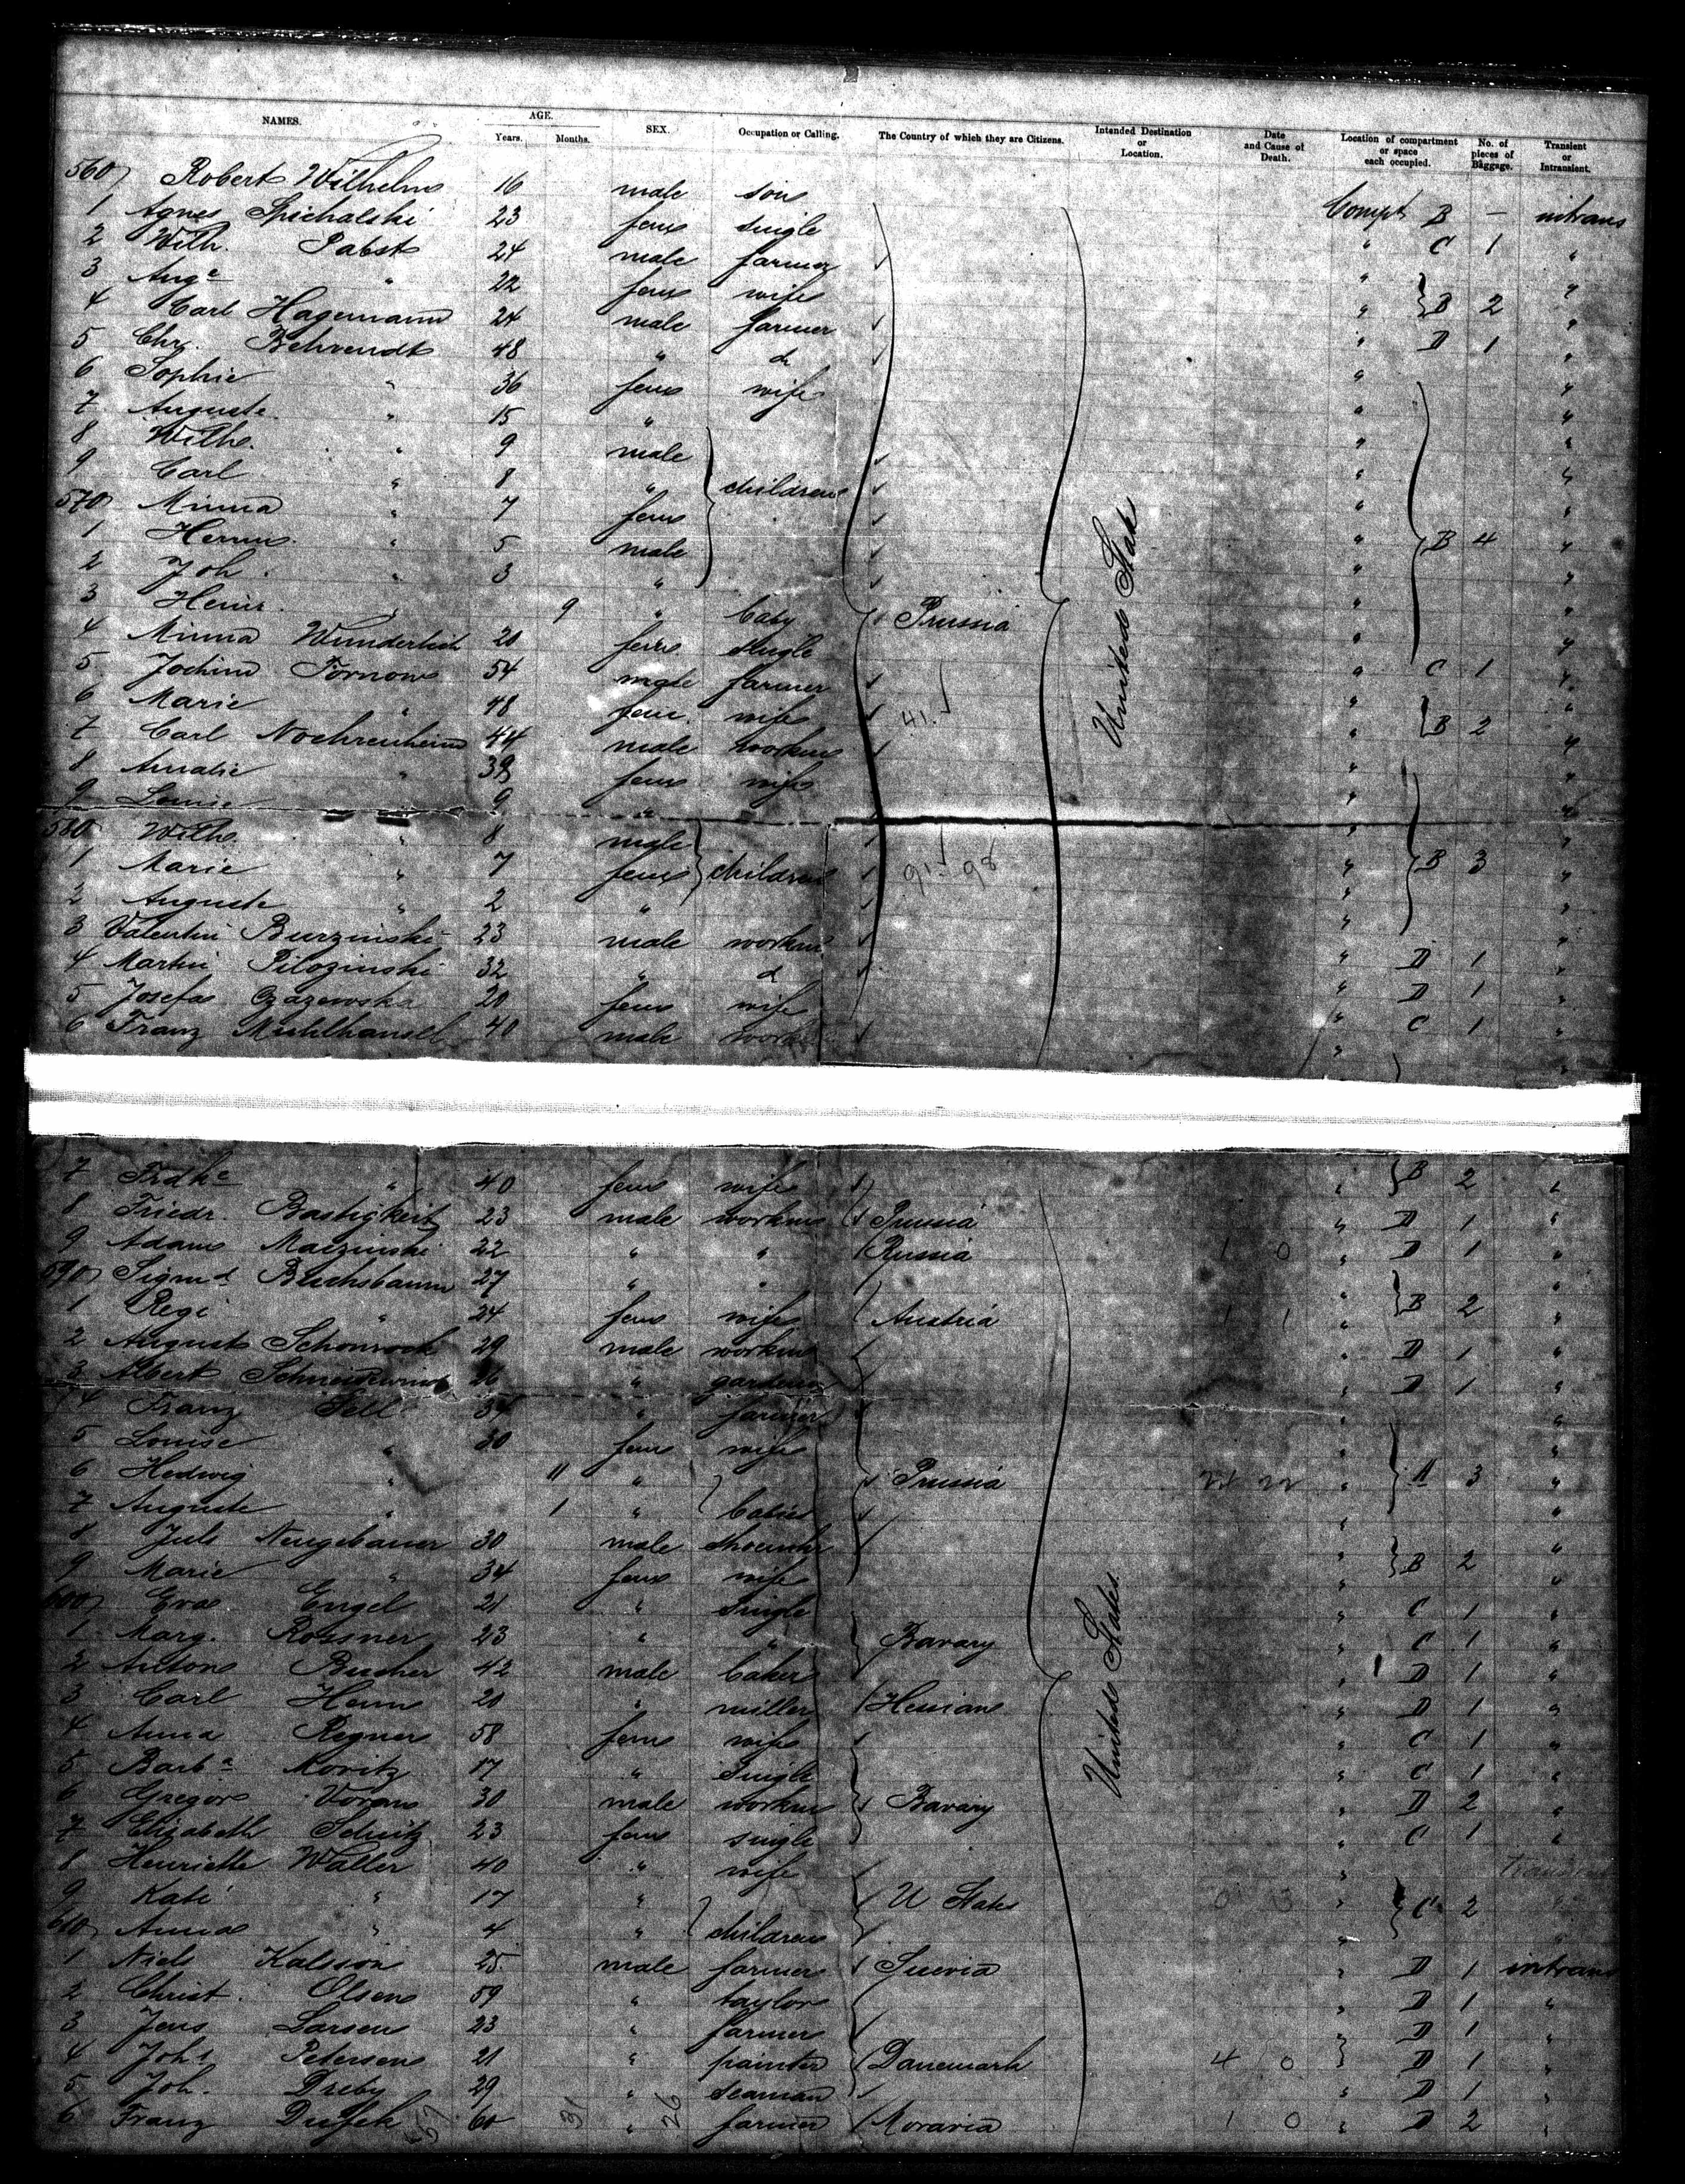 NAMES. AGE. SEX. Occupation or Calling. The Country of which they are Citizens. Intended Destination or Location. Date and Cause of Death. Location of compartment or space each occupied. No. of pieces of Baggage. Transient or Intransient.
Years. Months.
560 Robert Wilhelm 16 male son Compt B — intrans
1 Agnes Spichalski 23 fem single " C 1 "
2 Wilh. Pabst 24 male farmer "
3 Auge " 22 fem wife " B 2 "
4 Carl Hagemann 24 male farmer " D 1 "
5 Chr. Behrendt 48 " do "
6 Sophie " 36 fem wife " "
7 Auguste " 15 " " "
8 Wilh. " 9 male " "
9 Carl " 8 " children " "
570 Minna " 7 fem " "
1 Herm. " 5 male " B 4 "
2 Joh. " 3 " " "
3 Heinr. " 9 " baby Prussia " "
4 Minna Wunderlich 20 fem single United State " C 1 "
5 Jochim Tornow 54 male farmer " "
6 Marie " 48 fem. wife 41. " B 2 "
7 Carl Nochrenheim 44 male workm " "
8 Amalie " 38 fem wife " "
9 Louise " 9 " " "
580 Wilh. " 8 male " "
1 Marie " 7 fem children 91. 98 " B 3 "
2 Auguste " 2 " " "
3 Valentin Burzinski 23 male workm " D 1 "
4 Martin Pilozinski 32 " d " D 1 "
5 Josefa Czazewska 20 fem wife " C 1 "
6 Franz Muhlhansel 40 male workm "
7 Frdke " 40 fem wife " B 2 "
8 Friedr. Bastigkeit 23 male workm Prussia " D 1 "
9 Adam Maczinski 22 " " Russia 1 0 " D 1 "
590 Sigmd Buchsbaum 27 " " " "
1 Regi " 24 fem wife Austria 1 1 " B 2 "
2 August Schonrock 29 male workm " D 1 "
3 Albert Schneidewind 26 " gardener " D 1 "
4 Franz Sell 34 " farmer " "
5 Louise " 30 fem wife " "
6 Hedwig " 11 " Prussia 22 " A 3 "
7 Auguste " 1 " babies " "
8 Juls Neugebauer 30 male shoemkr " "
9 Marie " 34 fem wife " B 2 "
600 Eva Engel 21 " Single " C 1 "
1 Marg. Rossner 23 " " Bavary " C 1 "
2 Anton Bucher 42 male baker United States. " D 1 "
3 Carl Henn 20 " miller Hessian " D 1 "
4 Anna Regner 58 fem wife " C 1 "
5 Barba Moritz 17 " Single " C 1 "
6 Gregor Voran 30 male workm Bavary " D 2 "
7 Elisabeth Schutz 23 fem single " C 1 "
8 Henriette Waller 40 " wife " transient
9 Kati " 17 " U States 0 3 " C 2 "
610 Anna " 4 " children " "
1 Niels Kalsson 25 male farmer Suevia " D 1 intrans
2 Christ. Olsen 59 " taylor " D 1 "
3 Jens Larsen 23 " farmer " D 1 "
4 Johs Petersen 21 " painter Danemark 4 0 D 1 "
5 Joh. Dreby 29 " seaman " D 1 "
6 Franz Dusek 60 " farmer Moravia 1 0 " D 2 "
57 31 26